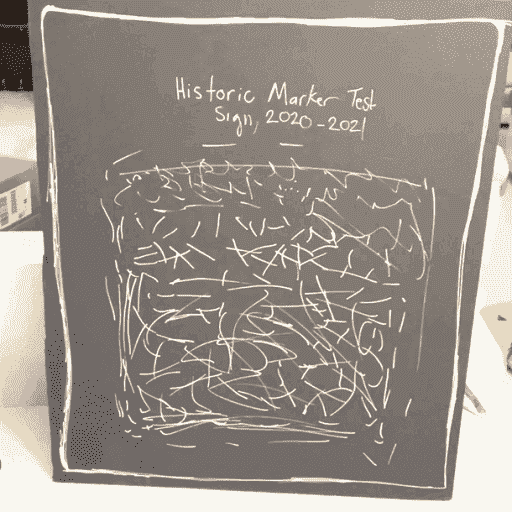 Historic Marker Test
Sign, 2020-2021